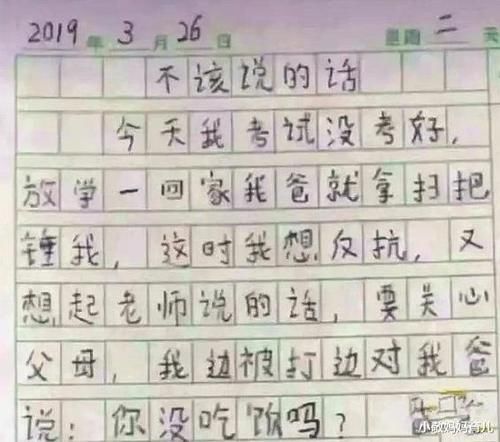 2019年3月26日 星期二 天
不该说的话
今天我考试没考好,
放学一回家我爸就拿扫把
锤我,这时我想反抗,又
想起老师说的话,要关心
父母,我边被打边对我爸
说:你没吃饭吗?
小敏妈妈育儿